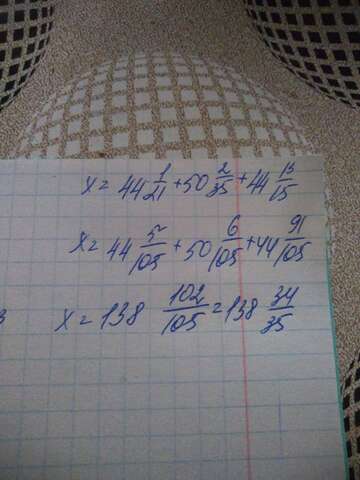 x = 44 1/21 + 50 2/35 + 44 13/15
x = 44 5/105 + 50 6/105 + 44 91/105
x = 138 102/105 = 138 34/35